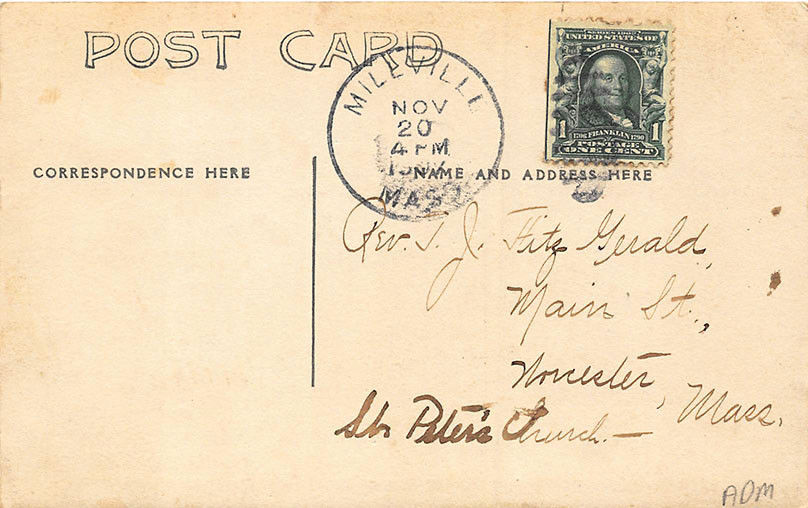 POST CARD
MILLVILLE
NOV
20
4 PM
MASS
SERIES 1902
UNITED STATES OF
AMERICA
1 1706 FRANKLIN 1790 1
POSTAGE
ONE CENT
CORRESPONDENCE HERE
NAME AND ADDRESS HERE
Rev. T. J. Fitz Gerald,
Main St.,
Worcester,
Mass.
St. Peter's Church.—
ADM